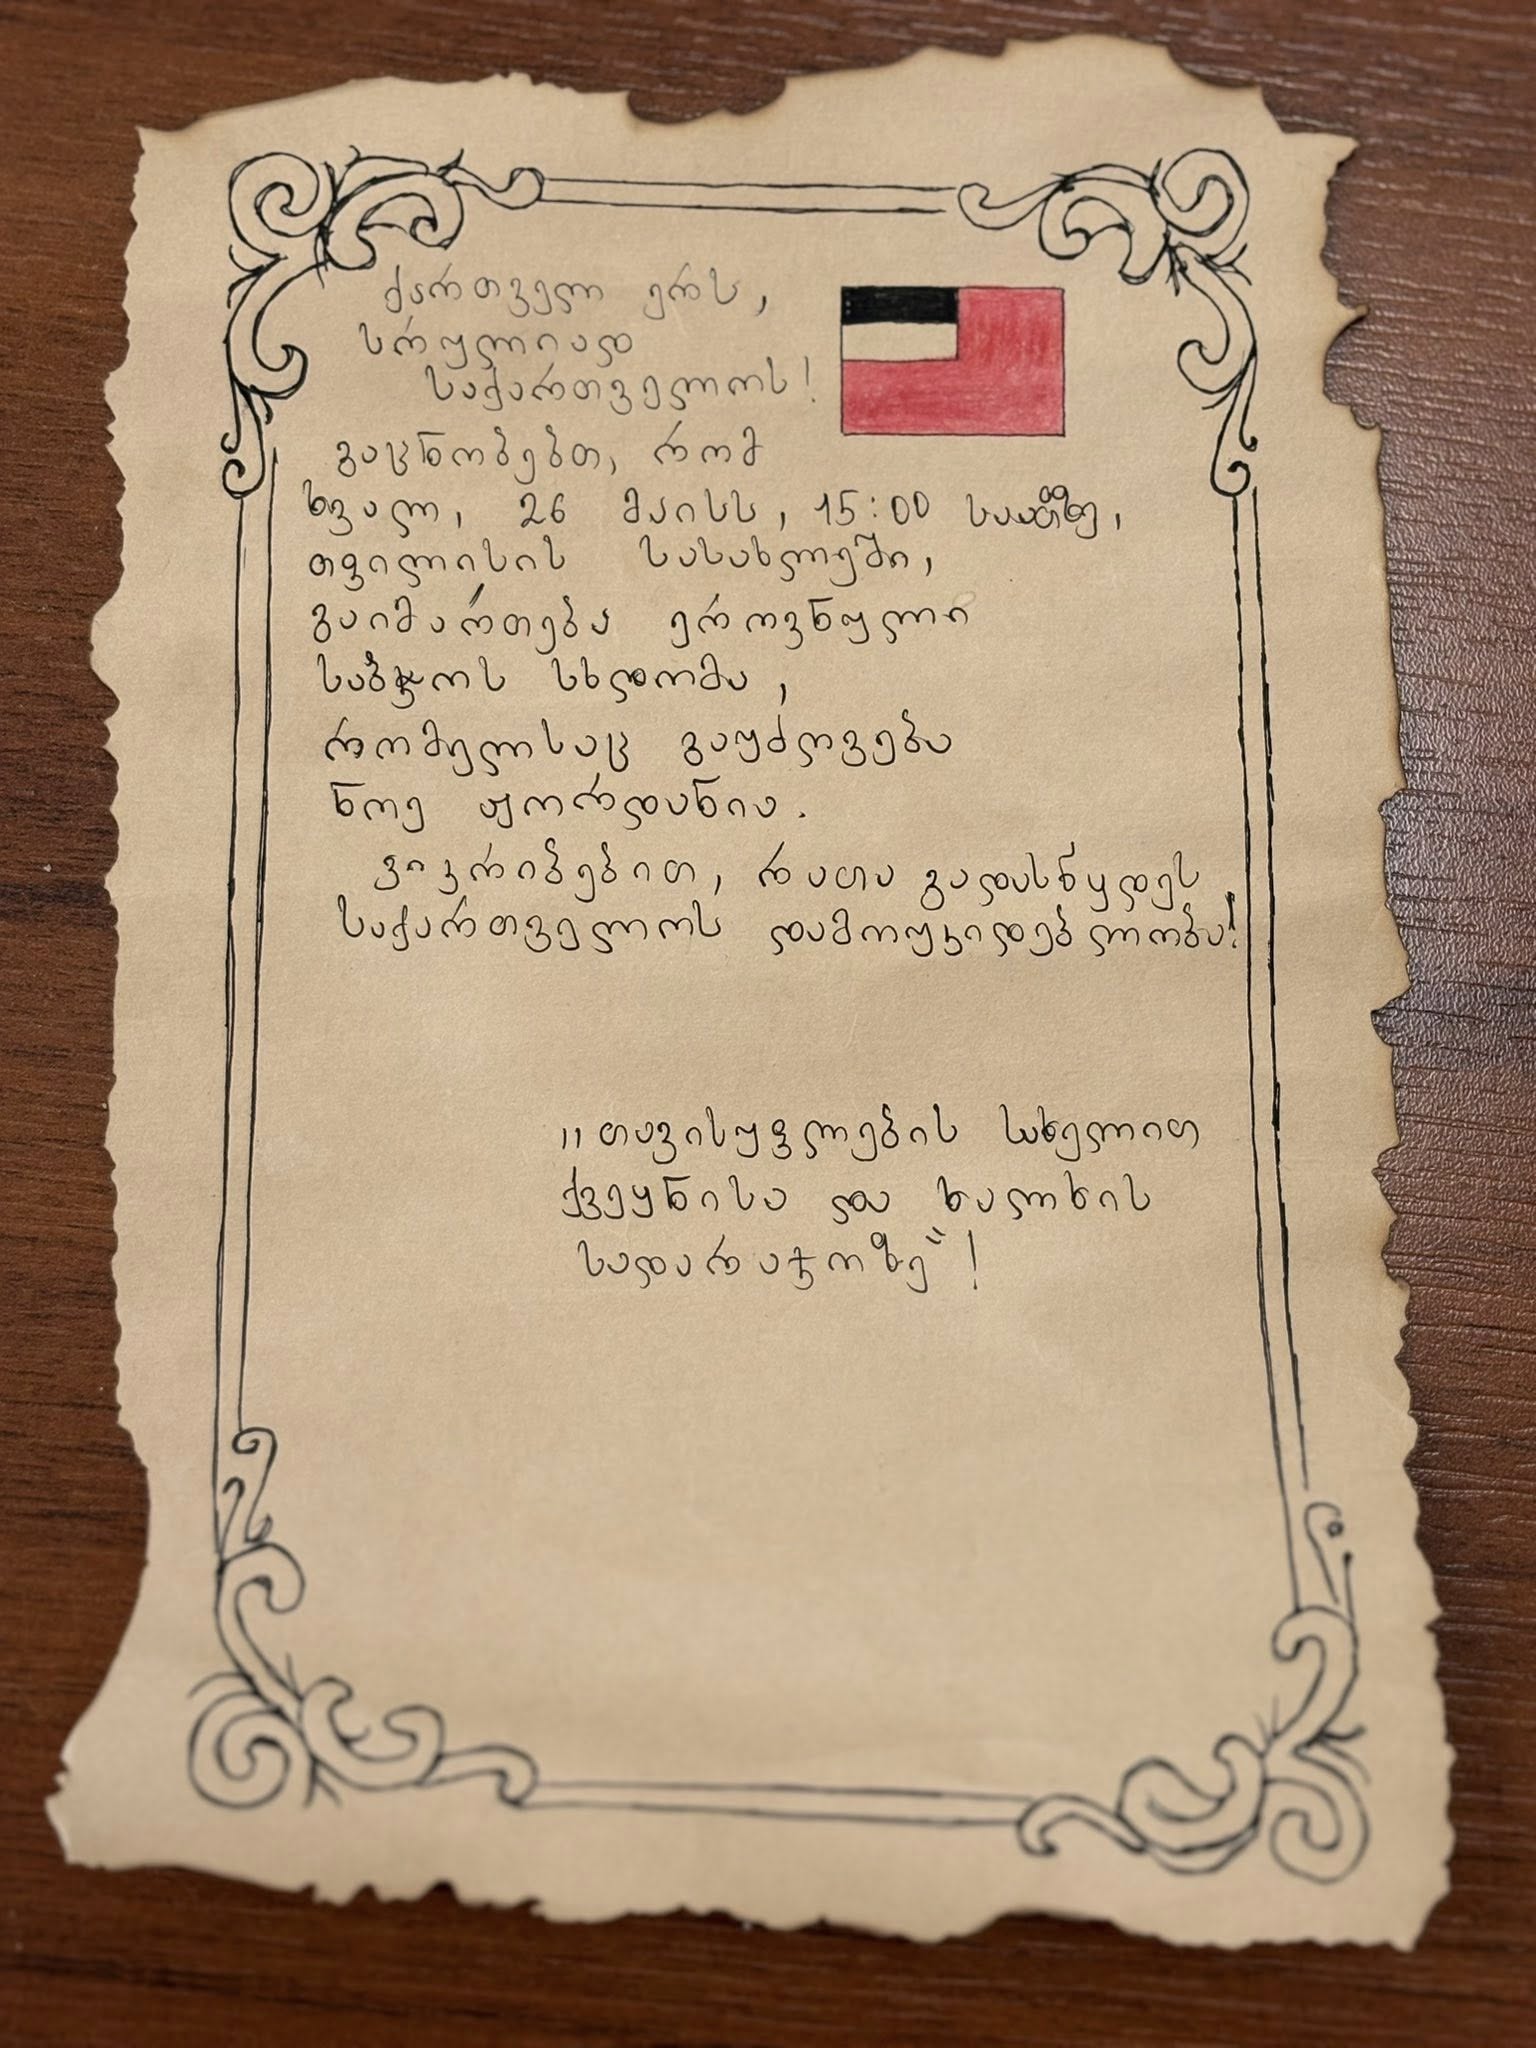 ქართველ ერს,
სრულიად
საქართველოს!
გაცნობებთ, რომ
ხვალ, 26 მაისს, 15:00 საათზე,
თფილისის სასახლეში,
გაიმართება ეროვნული
საბჭოს სხდომა,
რომელსაც გაუძღვება
ნოე ჟორდანია.
ვიკრიბებით, რათა გადასწყდეს
საქართველოს დამოუკიდებლობა!
„თავისუფლების სახელით
ქვეყნისა და ხალხის
სადარაჯოზე“!